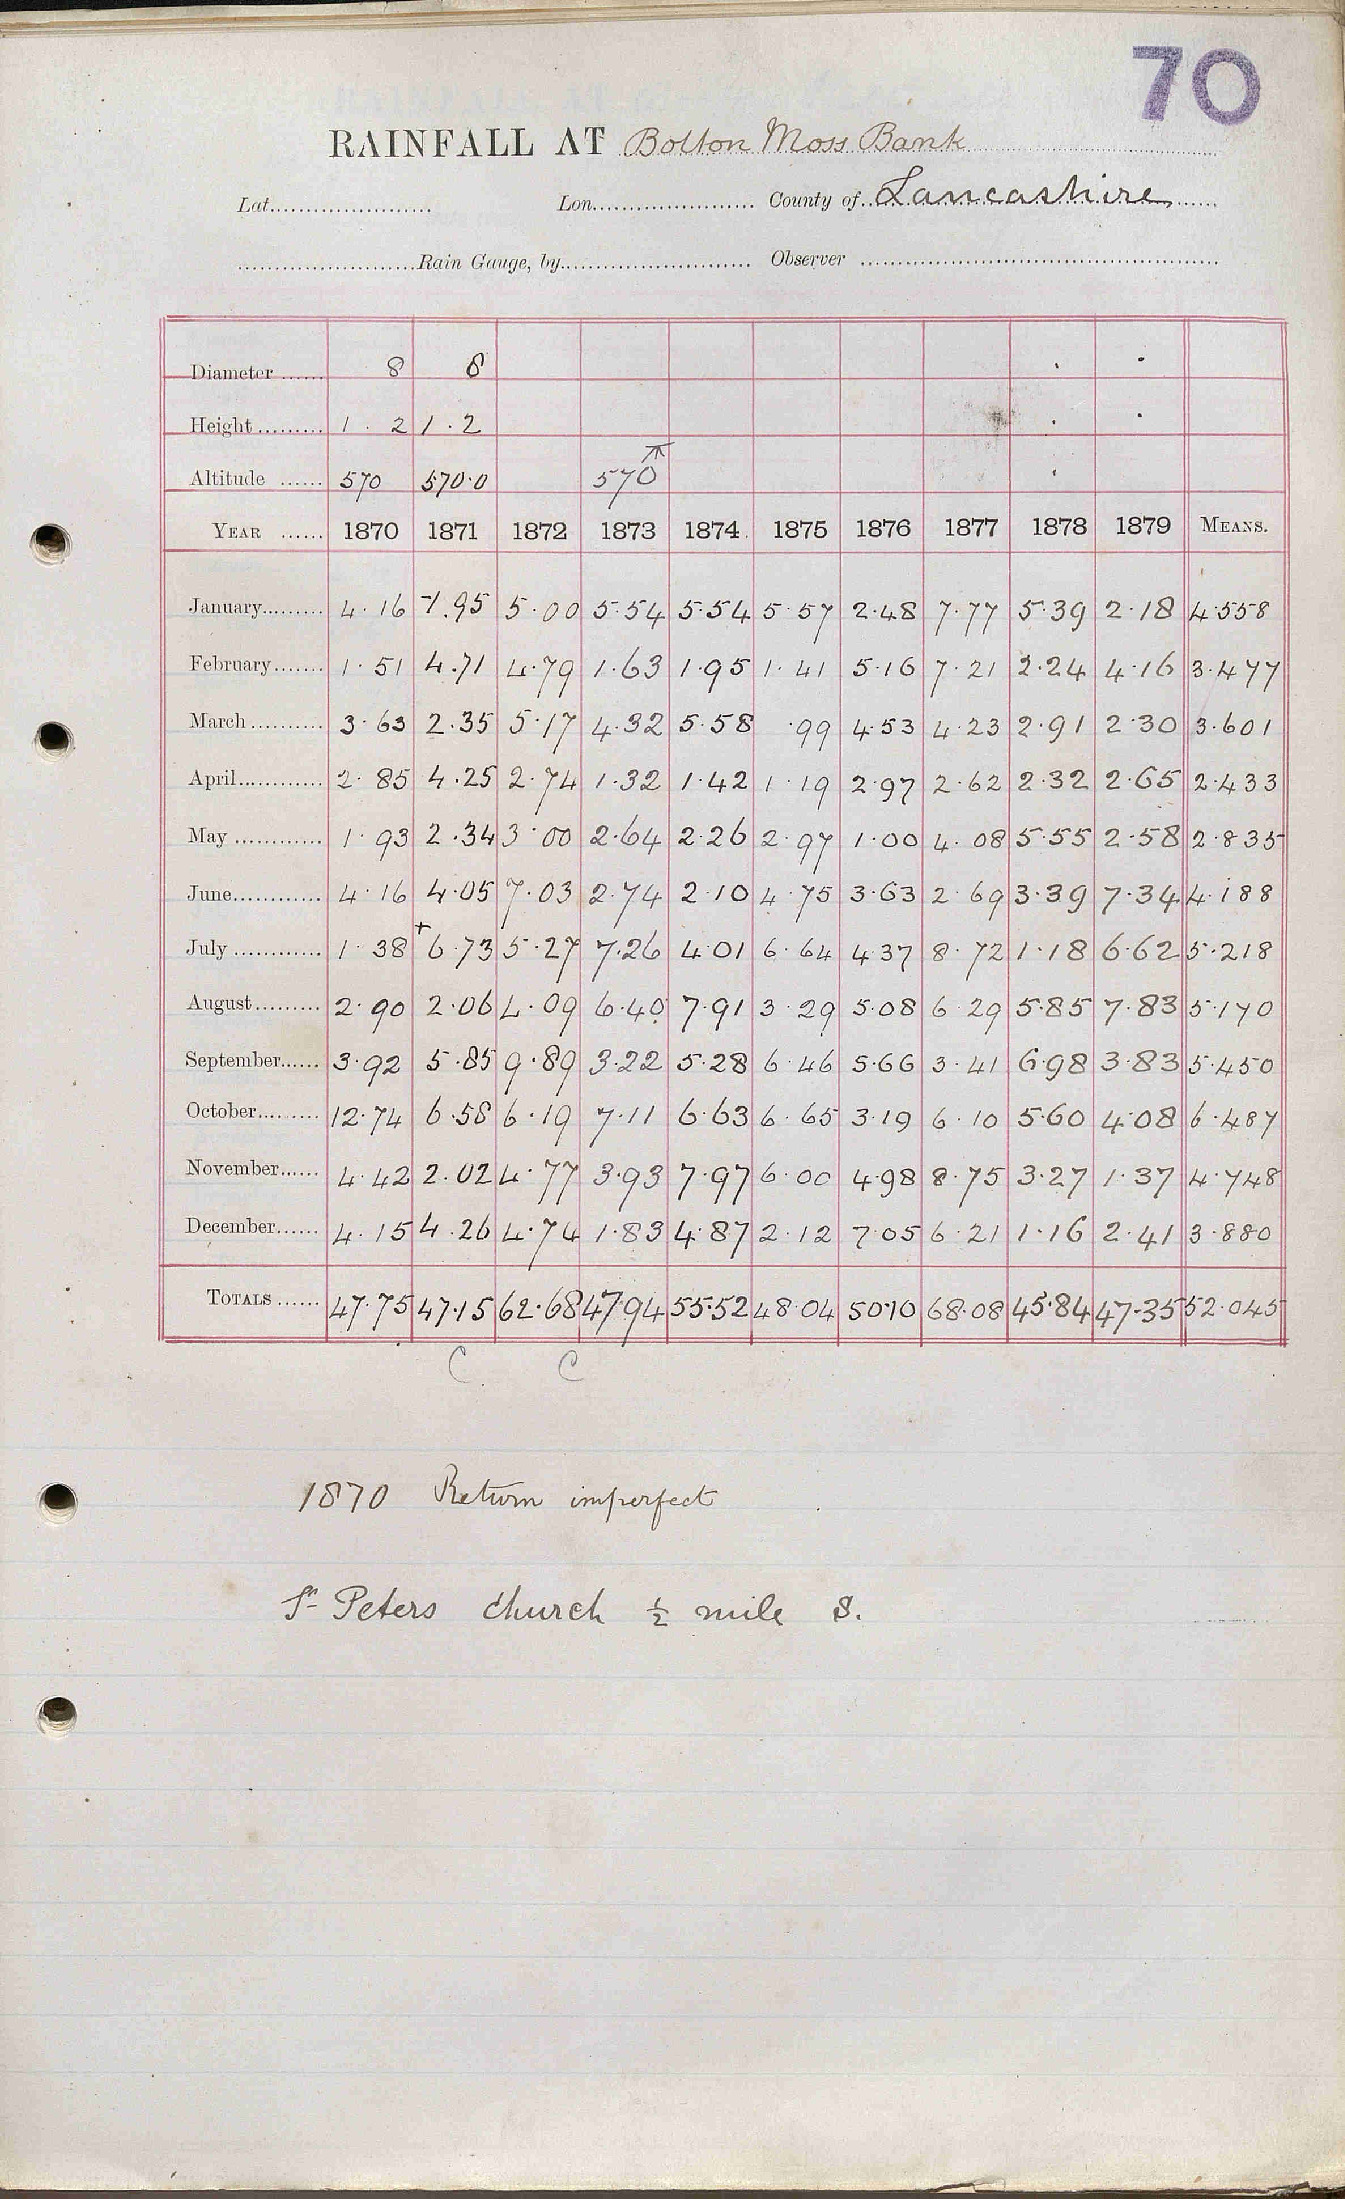 70
RAINFALL AT Bolton Moss Bank
Lat. Lon. County of Lancashire
Rain Gauge, by Observer
Diameter 8 8
Height 1.2 1.2
Altitude 570 570.0 570
YEAR 1870 1871 1872 1873 1874 1875 1876 1877 1878 1879 MEANS.
January 4.16 1.95 5.00 5.54 5.54 5.57 2.48 7.77 5.39 2.18 4.558
February 1.51 4.71 4.79 1.63 1.95 1.41 5.16 7.21 2.24 4.16 3.477
March 3.63 2.35 5.17 4.32 5.58 .99 4.53 4.23 2.91 2.30 3.601
April 2.85 4.25 2.74 1.32 1.42 1.19 2.97 2.62 2.32 2.65 2.433
May 1.93 2.34 3.00 2.64 2.26 2.97 1.00 4.08 5.55 2.58 2.835
June 4.16 4.05 7.03 2.74 2.10 4.75 3.63 2.69 3.39 7.34 4.188
July 1.38 +6.73 5.27 7.26 4.01 6.64 4.37 8.72 1.18 6.62 5.218
August 2.90 2.06 4.09 6.40 7.91 3.29 5.08 6.29 5.85 7.83 5.170
September 3.92 5.85 9.89 3.22 5.28 6.46 5.66 3.41 6.98 3.83 5.450
October 12.74 6.58 6.19 7.11 6.63 6.65 3.19 6.10 5.60 4.08 6.487
November 4.42 2.02 4.77 3.93 7.97 6.00 4.98 8.75 3.27 1.37 4.748
December 4.15 4.26 4.74 1.83 4.87 2.12 7.05 6.21 1.16 2.41 3.880
TOTALS 47.75 47.15 62.68 47.94 55.52 48.04 50.10 68.08 45.84 47.35 52.045
C C
1870 Return imperfect
St Peters church ½ mile S.